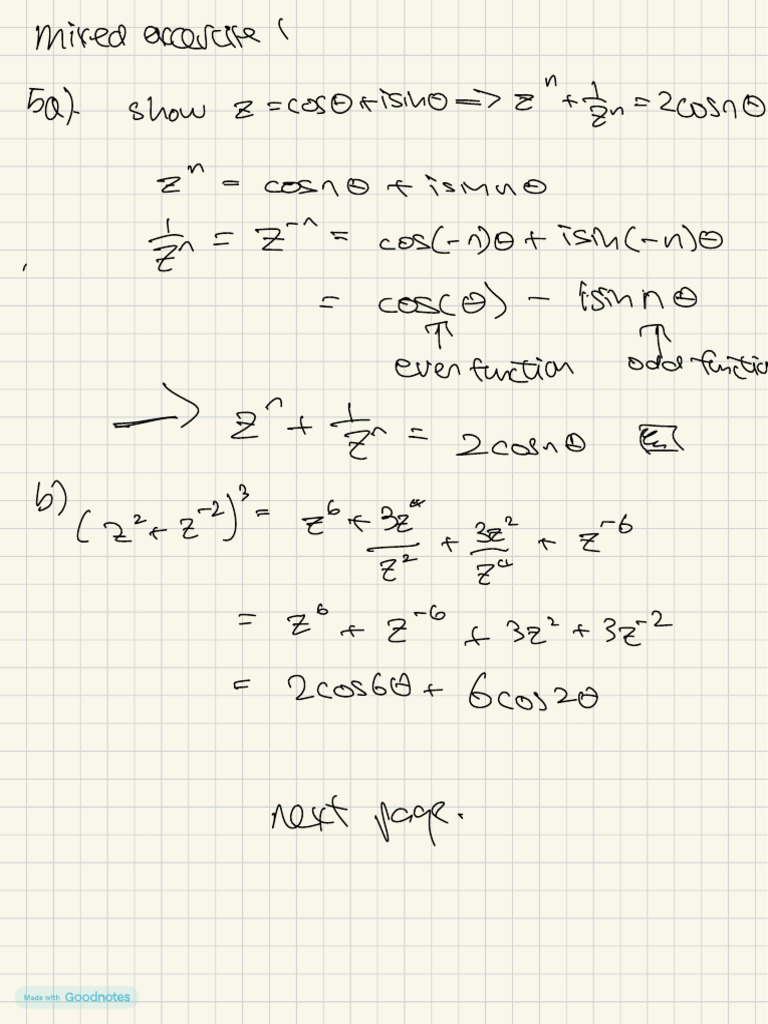 mixed excercise 1
5a). show z = cosθ + isinθ => z^n + 1/z^n = 2cosnθ
z^n = cosnθ + isinnθ
1/z^n = z^-n = cos(-n)θ + isin(-n)θ
= cos(θ) - isinnθ
↑ ↑
even function odd functio
→ z^n + 1/z^n = 2cosnθ
b) (z^2 + z^-2)^3 = z^6 + 3z^4/z^2 + 3z^2/z^4 + z^-6
= z^6 + z^-6 + 3z^2 + 3z^-2
= 2cos6θ + 6cos2θ
next page.
Made with Goodnotes